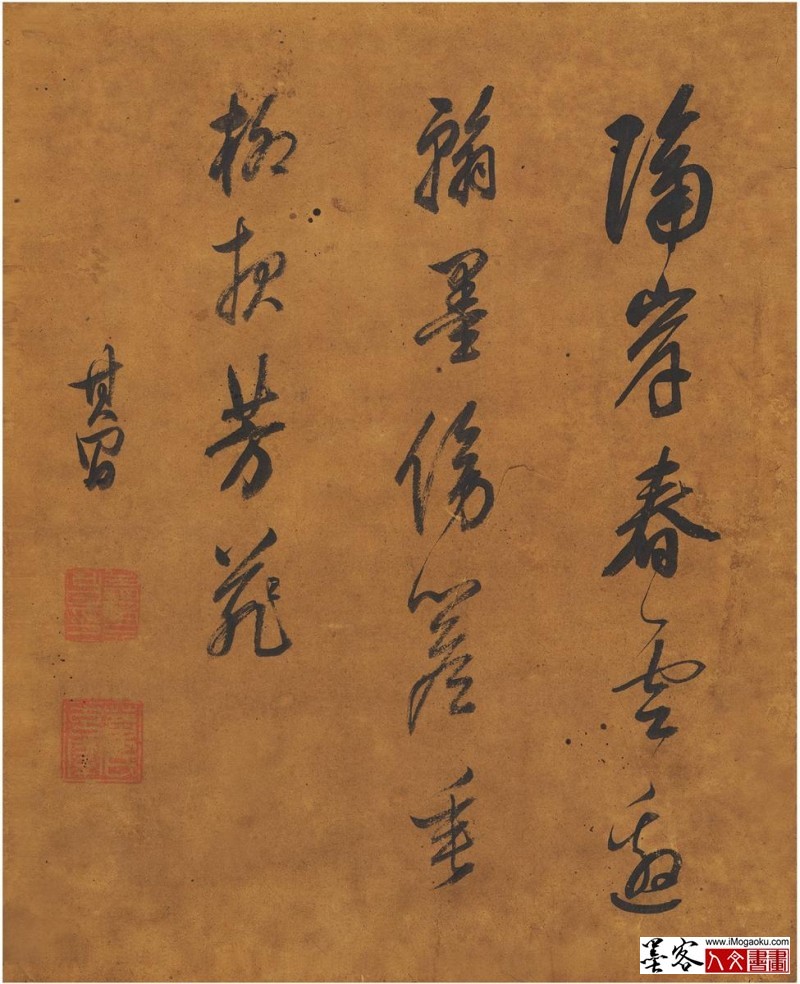 隔岸春雲邀
翰墨傍簷垂
柳報芳菲
其昌
墨客
www.iMogaoku.com
人文書畫